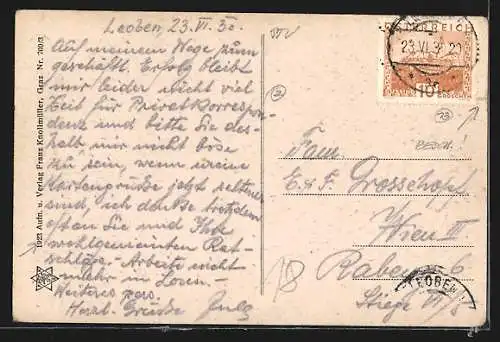 Leoben, 23. VI. 30.
Auf meinem Wege zum
geschäftl. Erfolg bleibt
mir leider nicht viel
Zeit für Privatkorrespon-
denz und bitte Sie des-
halb mir nicht böse
zu sein, wenn meine
Kartengrüsse jetzt seltener
sind, ich denke trotzdem
oft an Sie und Ihre
wohlgemeinten Rat-
schläge. - Arbeite nicht
mehr in Losen. -
Weiteres pers.
Herzl. Grüsse
1923 Aufn. u. Verlag Franz Knollmüller, Graz Nr. 760/3
ÖSTERREICH
23.VI.3 20
10
GROSCHEN
Fam.
E. & F. Grosschopf
Wien III
Stiege
LEOBEN